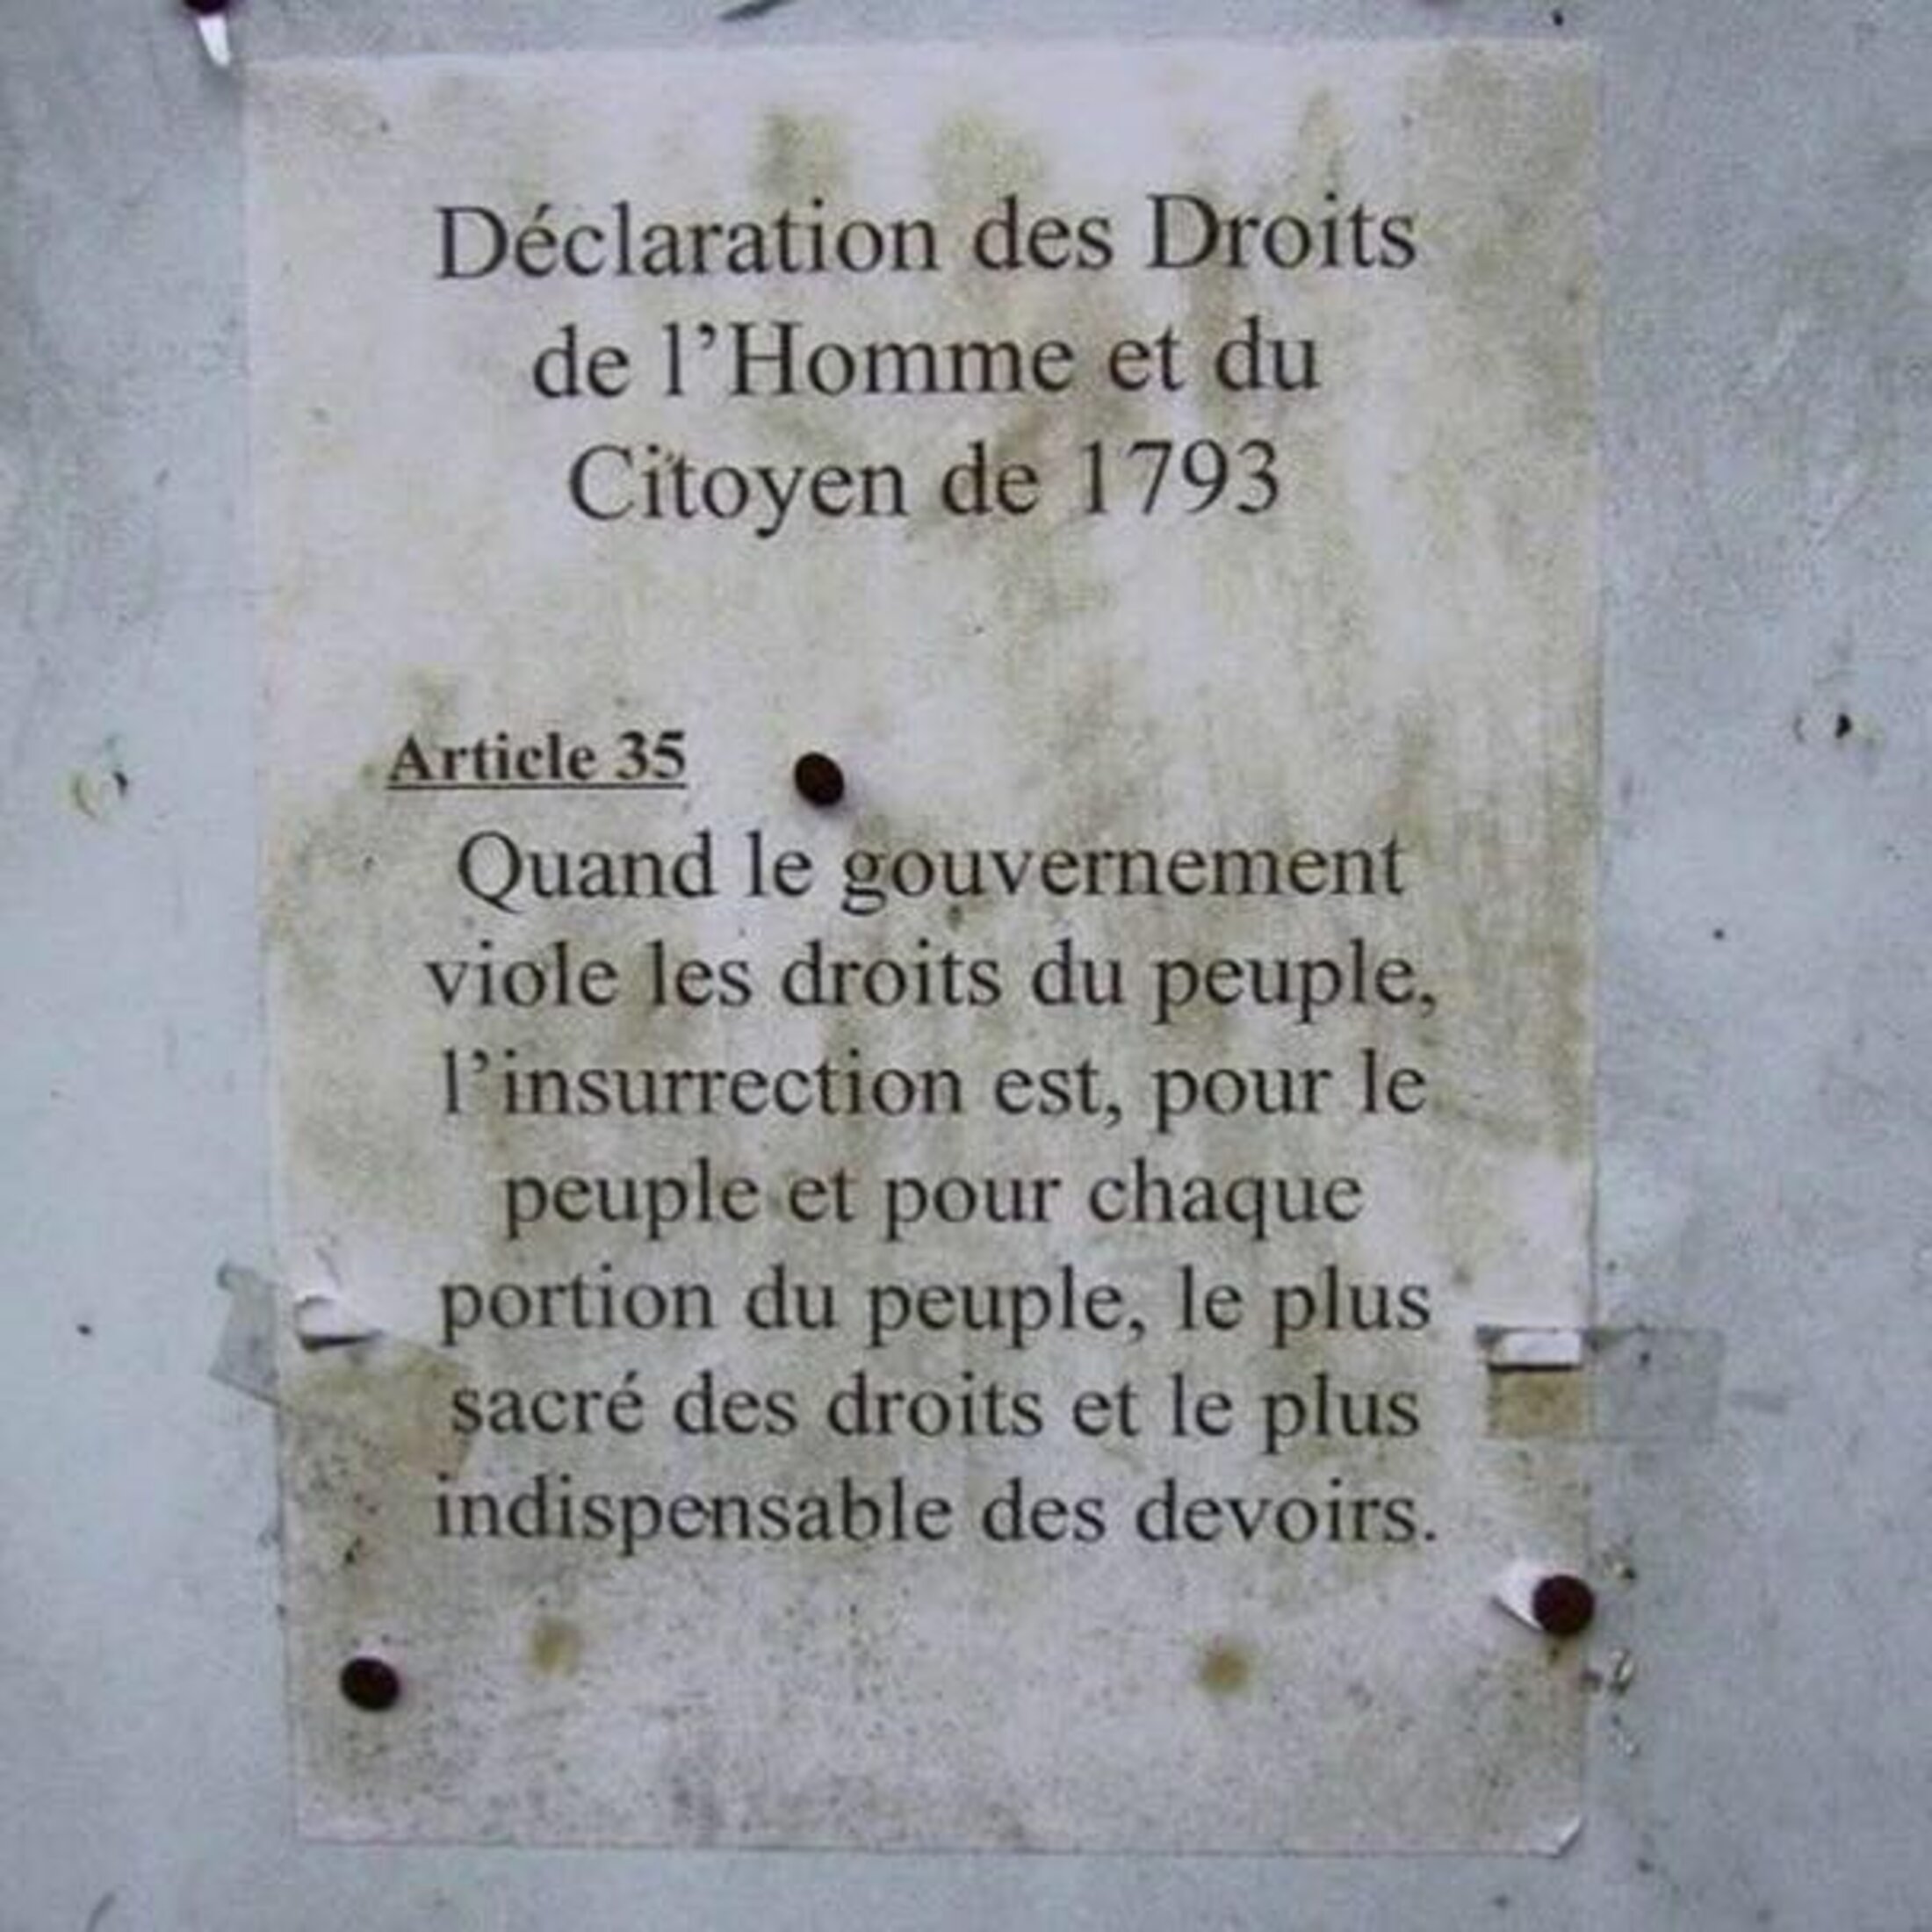 Déclaration des Droits
de l’Homme et du
Citoyen de 1793
Article 35
Quand le gouvernement
viole les droits du peuple,
l’insurrection est, pour le
peuple et pour chaque
portion du peuple, le plus
sacré des droits et le plus
indispensable des devoirs.